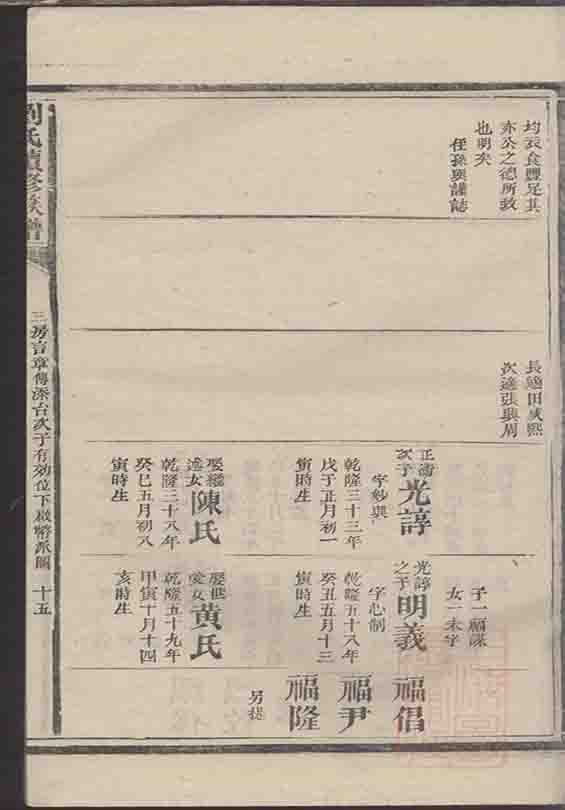 均衣食豐足其
亦公之德所致
也明矣
侄孫興謹誌
長適田咸熙
次適張興周
正
次子
光諄
字紗興
乾隆三十三年
戊子正月初一
寅時生
娶
女
陳氏
乾隆三十八年
癸巳五月初八
寅時生
子一福謀
女一未字
光諄
之子
明義
字心制
乾隆五十八年
癸丑五月十三
寅時生
娶世
愛女
黃氏
乾隆五十九年
甲寅十月十四
亥時生
福倡
福尹
福隆
另提
劉氏續修族譜
三房言章傳添台次子有効位下啟 派圖
十五